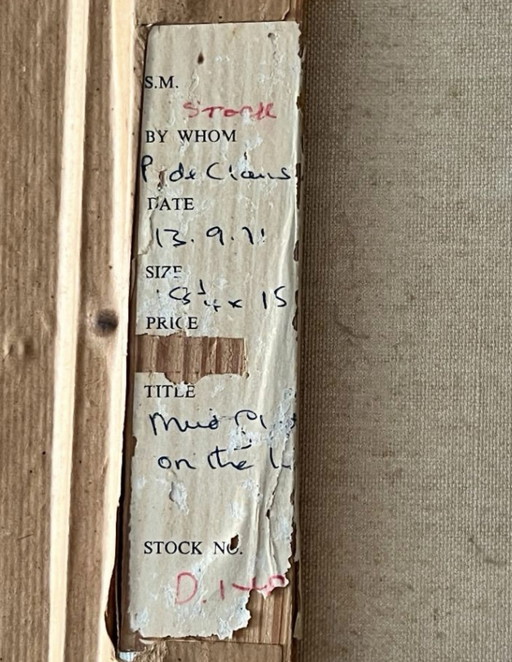 S.M.
STOCK
BY WHOM
P. de Claus
DATE
13. 9. 71
SIZE
x 15
PRICE
TITLE
on the
STOCK NO.
D.